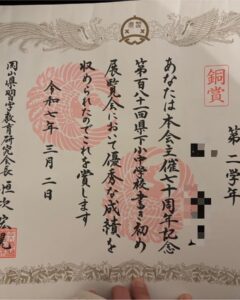 銅賞
第二学年
あなたは本会主催七十周年記念
第百十一回県下小中学校書き初め
展覧会において優秀な成績を
収められたのでこれを賞します
令和七年三月二日
岡山県習字教育研究会長 恒次宏